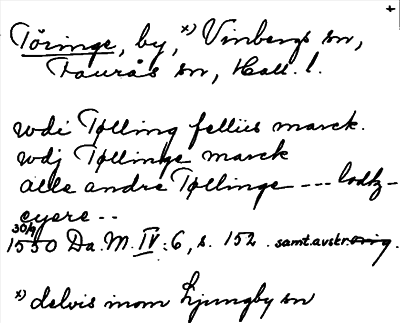 +
Töringe, by, x) Vinbergs sn,
Faurås sn, Hall. l.
wdi Tølling fellüs marck.
wdj Tøllinge marck
alle andre Tøllinge --- lodtz-
eyere --
30/9
1550 Da. M. IV: 6, s. 152. samt. avskr.
x) delvis inom Ljungby sn